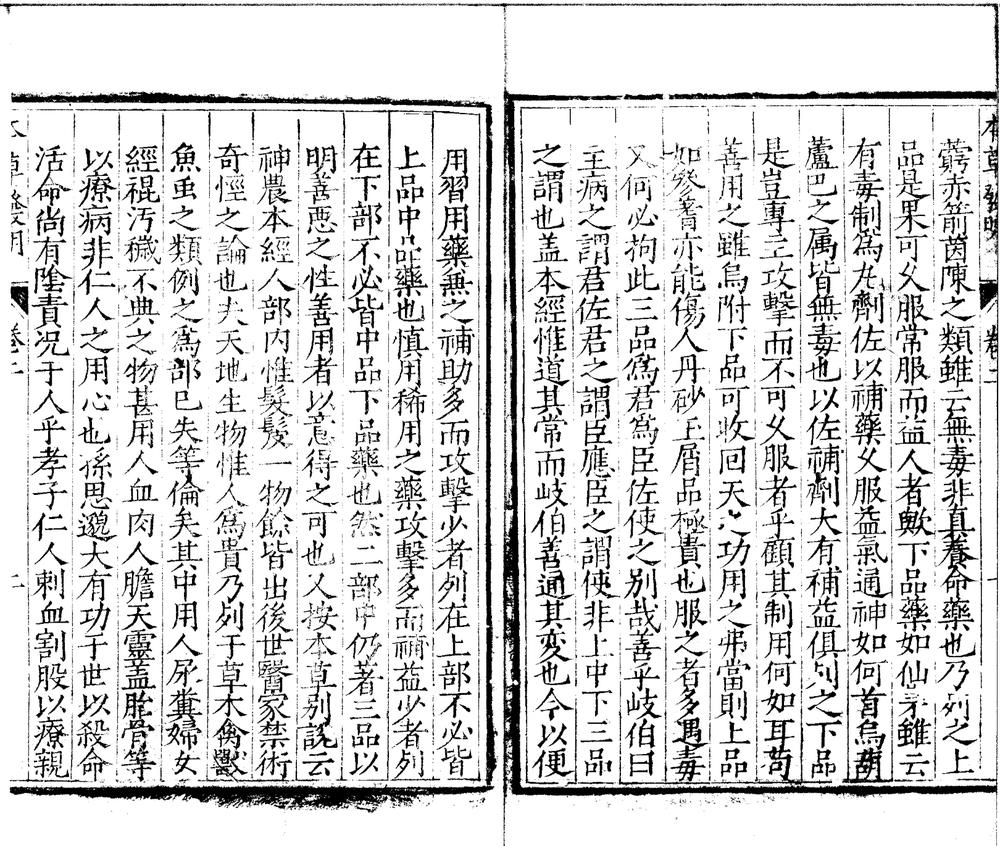 本草發明 卷二
蘼赤箭茵陳之類雖云無毒非真養命藥也乃列之上
品是果可久服常服而益人者歟下品藥如仙茅雖云
有毒制為丸劑佐以補藥久服益氣通神如何首烏葫
蘆巴之属皆無毒也以佐補劑大有補益俱列之下品
是豈專主攻擊而不可久服者乎顧其制用何如耳苟
善用之雖烏附下品可收回天之功用之弗當則上品
如參耆亦能傷人丹砂玉屑品極貴也服之者多遇毒
又何必拘此三品爲君爲臣佐使之别哉善乎岐伯曰
主病之謂君佐君之謂臣應臣之謂使非上中下三品
之謂也盖本經惟道其常而岐伯善通其変也今以便
用習用藥無之補助多而攻擊少者列在上部不必皆
上品中品藥也慎用稀用之藥攻擊多而補益少者列
在下部不必皆中品下品藥也然二部中仍著三品以
明善悪之性善用者以意得之可也又按本草别說云
神農本經人部内惟髮髲一物餘皆出後世醫家禁術
奇怪之論也夫天地生物惟人爲貴乃列于草木禽獸
魚虫之類例之爲部已失等倫矣其中用人尿糞婦女
經裩污穢不典之物甚用人血肉人膽天靈盖胞骨等
以療病非仁人之用心也孫思邈大有功于世以殺命
活命尚有陰責况于人乎孝子仁人刺血割股以療親
本草發明 卷二 二